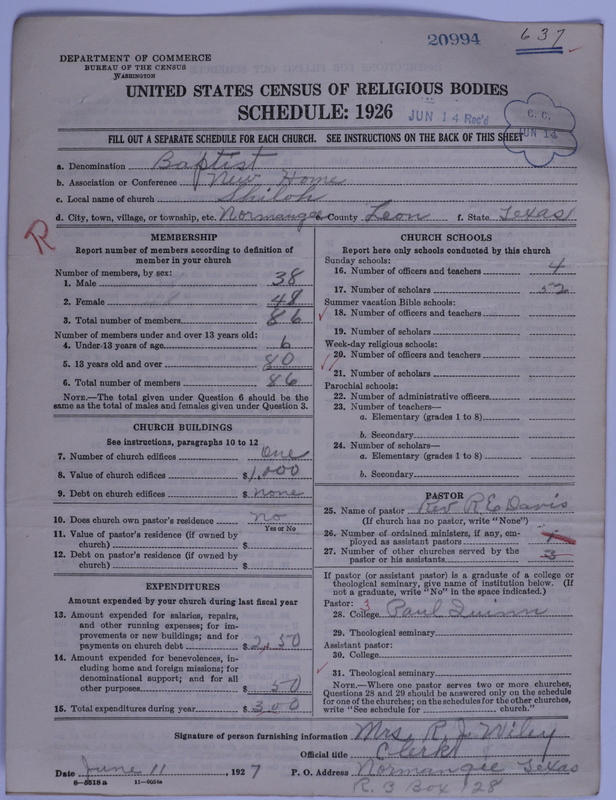 20994 637
DEPARTMENT OF COMMERCE
BUREAU OF THE CENSUS
WASHINGTON
UNITED STATES CENSUS OF RELIGIOUS BODIES
SCHEDULE: 1926 JUN 14 Rec'd
C. C.
JUN 14
FILL OUT A SEPARATE SCHEDULE FOR EACH CHURCH. SEE INSTRUCTIONS ON THE BACK OF THIS SHEET
a. Denomination Baptist
b. Association or Conference New Home
c. Local name of church Shiloh
d. City, town, village, or township, etc. Normangee e. County Leon f. State Texas
R
MEMBERSHIP
Report number of members according to definition of
member in your church
Number of members, by sex:
1. Male 38
2. Female 48
3. Total number of members 86
Number of members under and over 13 years old:
4. Under 13 years of age 6
5. 13 years old and over 80
6. Total number of members 86
NOTE.—The total given under Question 6 should be the
same as the total of males and females given under Question 3.
CHURCH BUILDINGS
See instructions, paragraphs 10 to 12
7. Number of church edifices One
8. Value of church edifices $1,000
9. Debt on church edifices $ none
10. Does church own pastor's residence no
Yes or No
11. Value of pastor's residence (if owned by
church) $
12. Debt on pastor's residence (if owned by
church) $
EXPENDITURES
Amount expended by your church during last fiscal year
13. Amount expended for salaries, repairs,
and other running expenses; for im-
provements or new buildings; and for
payments on church debt $ 2,50
14. Amount expended for benevolences, in-
cluding home and foreign missions; for
denominational support; and for all
other purposes $ 50
15. Total expenditures during year $ 300
CHURCH SCHOOLS
Report here only schools conducted by this church
Sunday schools:
16. Number of officers and teachers 4
17. Number of scholars 52
Summer vacation Bible schools:
18. Number of officers and teachers
19. Number of scholars
Week-day religious schools:
20. Number of officers and teachers
21. Number of scholars
Parochial schools:
22. Number of administrative officers
23. Number of teachers—
a. Elementary (grades 1 to 8)
b. Secondary
24. Number of scholars—
a. Elementary (grades 1 to 8)
b. Secondary
PASTOR
25. Name of pastor Rev R E Davis
(If church has no pastor, write "None")
26. Number of ordained ministers, if any, em-
ployed as assistant pastors 1
27. Number of other churches served by the
pastor or his assistants 3
If pastor (or assistant pastor) is a graduate of a college or
theological seminary, give name of institution below. (If
not a graduate, write "No" in the space indicated.)
Pastor: 3
28. College Paul Quinn
29. Theological seminary
Assistant pastor:
30. College
31. Theological seminary
NOTE.—Where one pastor serves two or more churches,
Questions 28 and 29 should be answered only on the schedule
for one of the churches; on the schedules for the other churches,
write "See schedule for church."
Signature of person furnishing information Mrs. R. J. Wiley
Official title Clerk
Date June 11, 1927 P. O. Address Normangee Texas
8—5518 a 11—9054a R. 3 Box 128